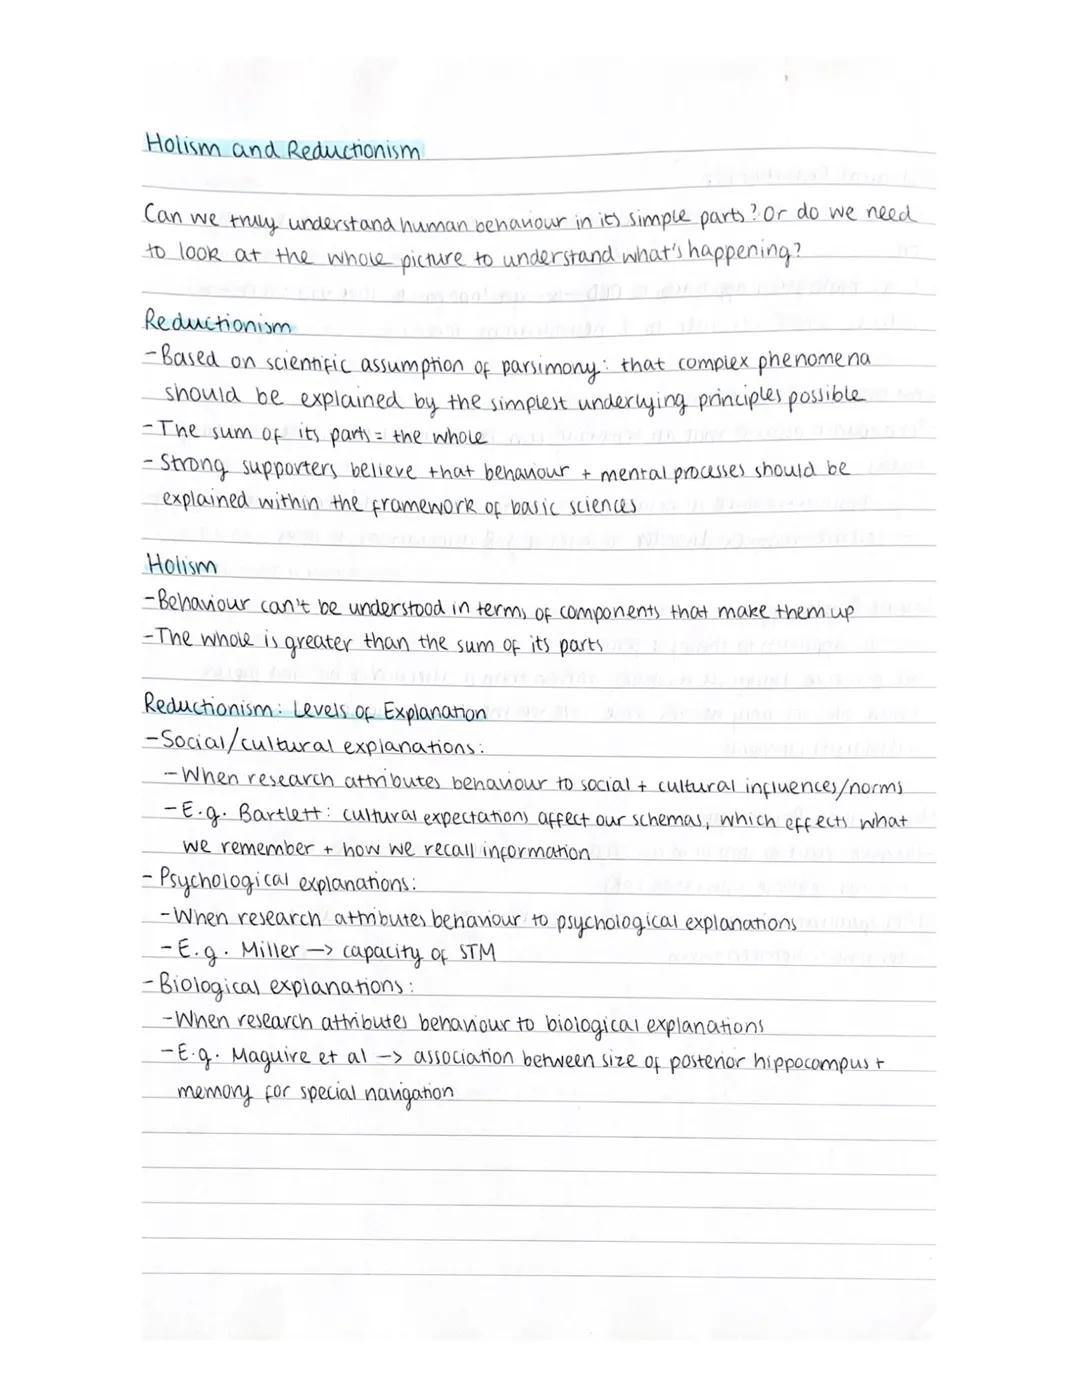 Holism and Reductionism
Can we truly understand human behaviour in its simple parts? Or do we need
to look at the whole picture to understand what's happening?
Reductionism
- Based on scientific assumption of parsimony: that complex phenomena
should be explained by the simplest underlying principles possible
- The sum of its parts = the whole
- Strong supporters believe that behaviour + mental processes should be
explained within the framework of basic sciences
Holism
- Behaviour can't be understood in terms of components that make them up
- The whole is greater than the sum of its parts
Reductionism: Levels of Explanation
- Social/cultural explanations:
- When research attributes behaviour to social + cultural influences/norms
- E.g. Bartlett: cultural expectations affect our schemas, which effects what
we remember + how we recall information
- Psychological explanations:
- When research attributes behaviour to psychological explanations
- E.g. Miller -> capacity of STM
- Biological explanations:
- When research attributes behaviour to biological explanations
- E.g. Maguire et al -> association between size of posterior hippocampus +
memory for special navigation